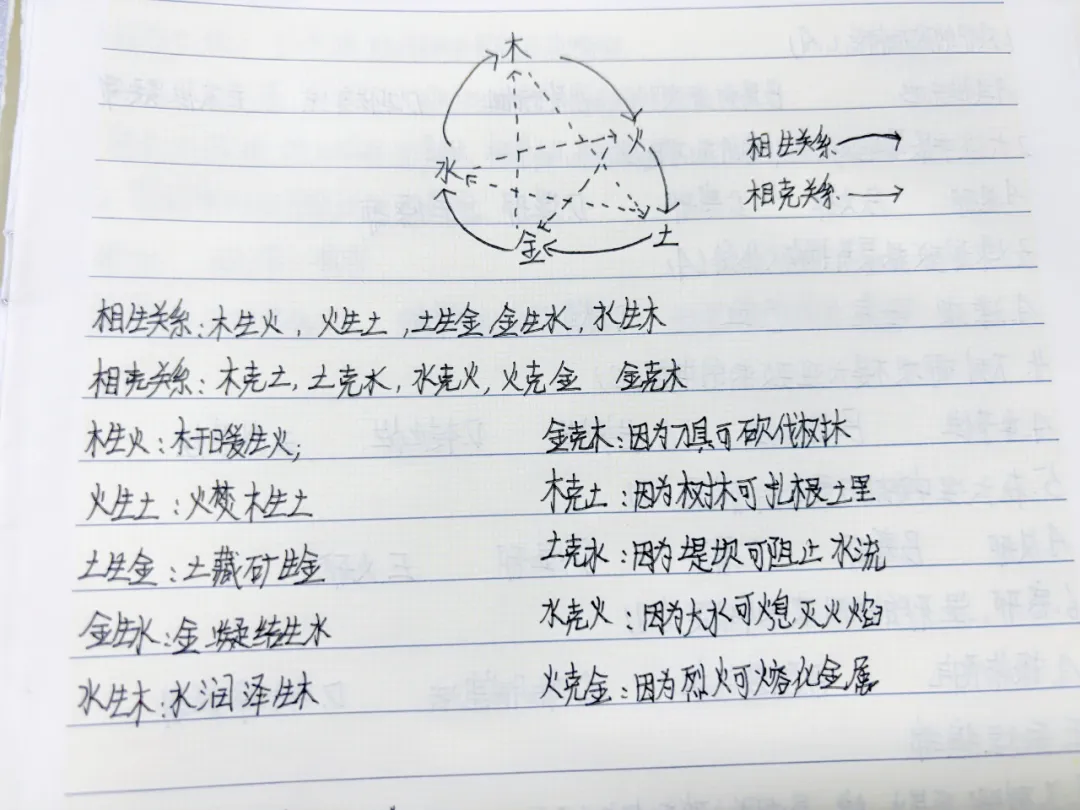 木
火
水
金
土
相生关系
相克关系
相生关系:木生火,火生土,土生金,金生水,水生木
相克关系:木克土,土克水,水克火,火克金 金克木
木生火:木干暖生火;
火生土:火焚木生土
土生金:土藏矿生金
金生水:金凝结生水
水生木:水润泽生木
金克木:因为刀具可砍伐树林
木克土:因为树木可扎根土里
土克水:因为堤坝可阻止水流
水克火:因为大水可熄灭火焰
火克金:因为烈火可熔化金属